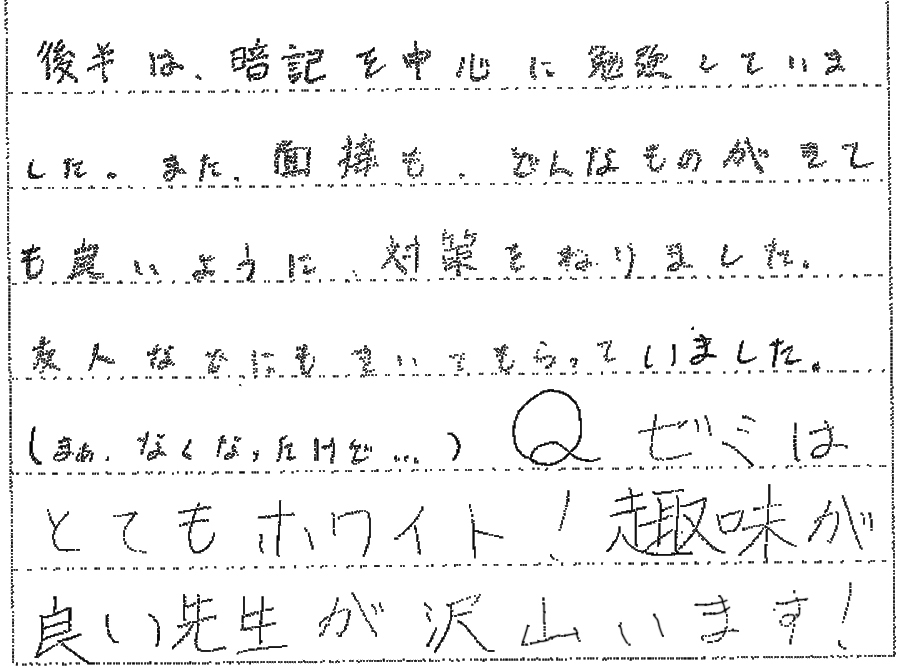 後半は、暗記を中心に勉強していま
した。また、面接も、どんなものがきて
も良いように、対策をねりました。
友人などにもきいてもらっていました。
(まぁ、なくなったけど…)Q ゼミは
とてもホワイト!趣味が
良い先生が沢山います!